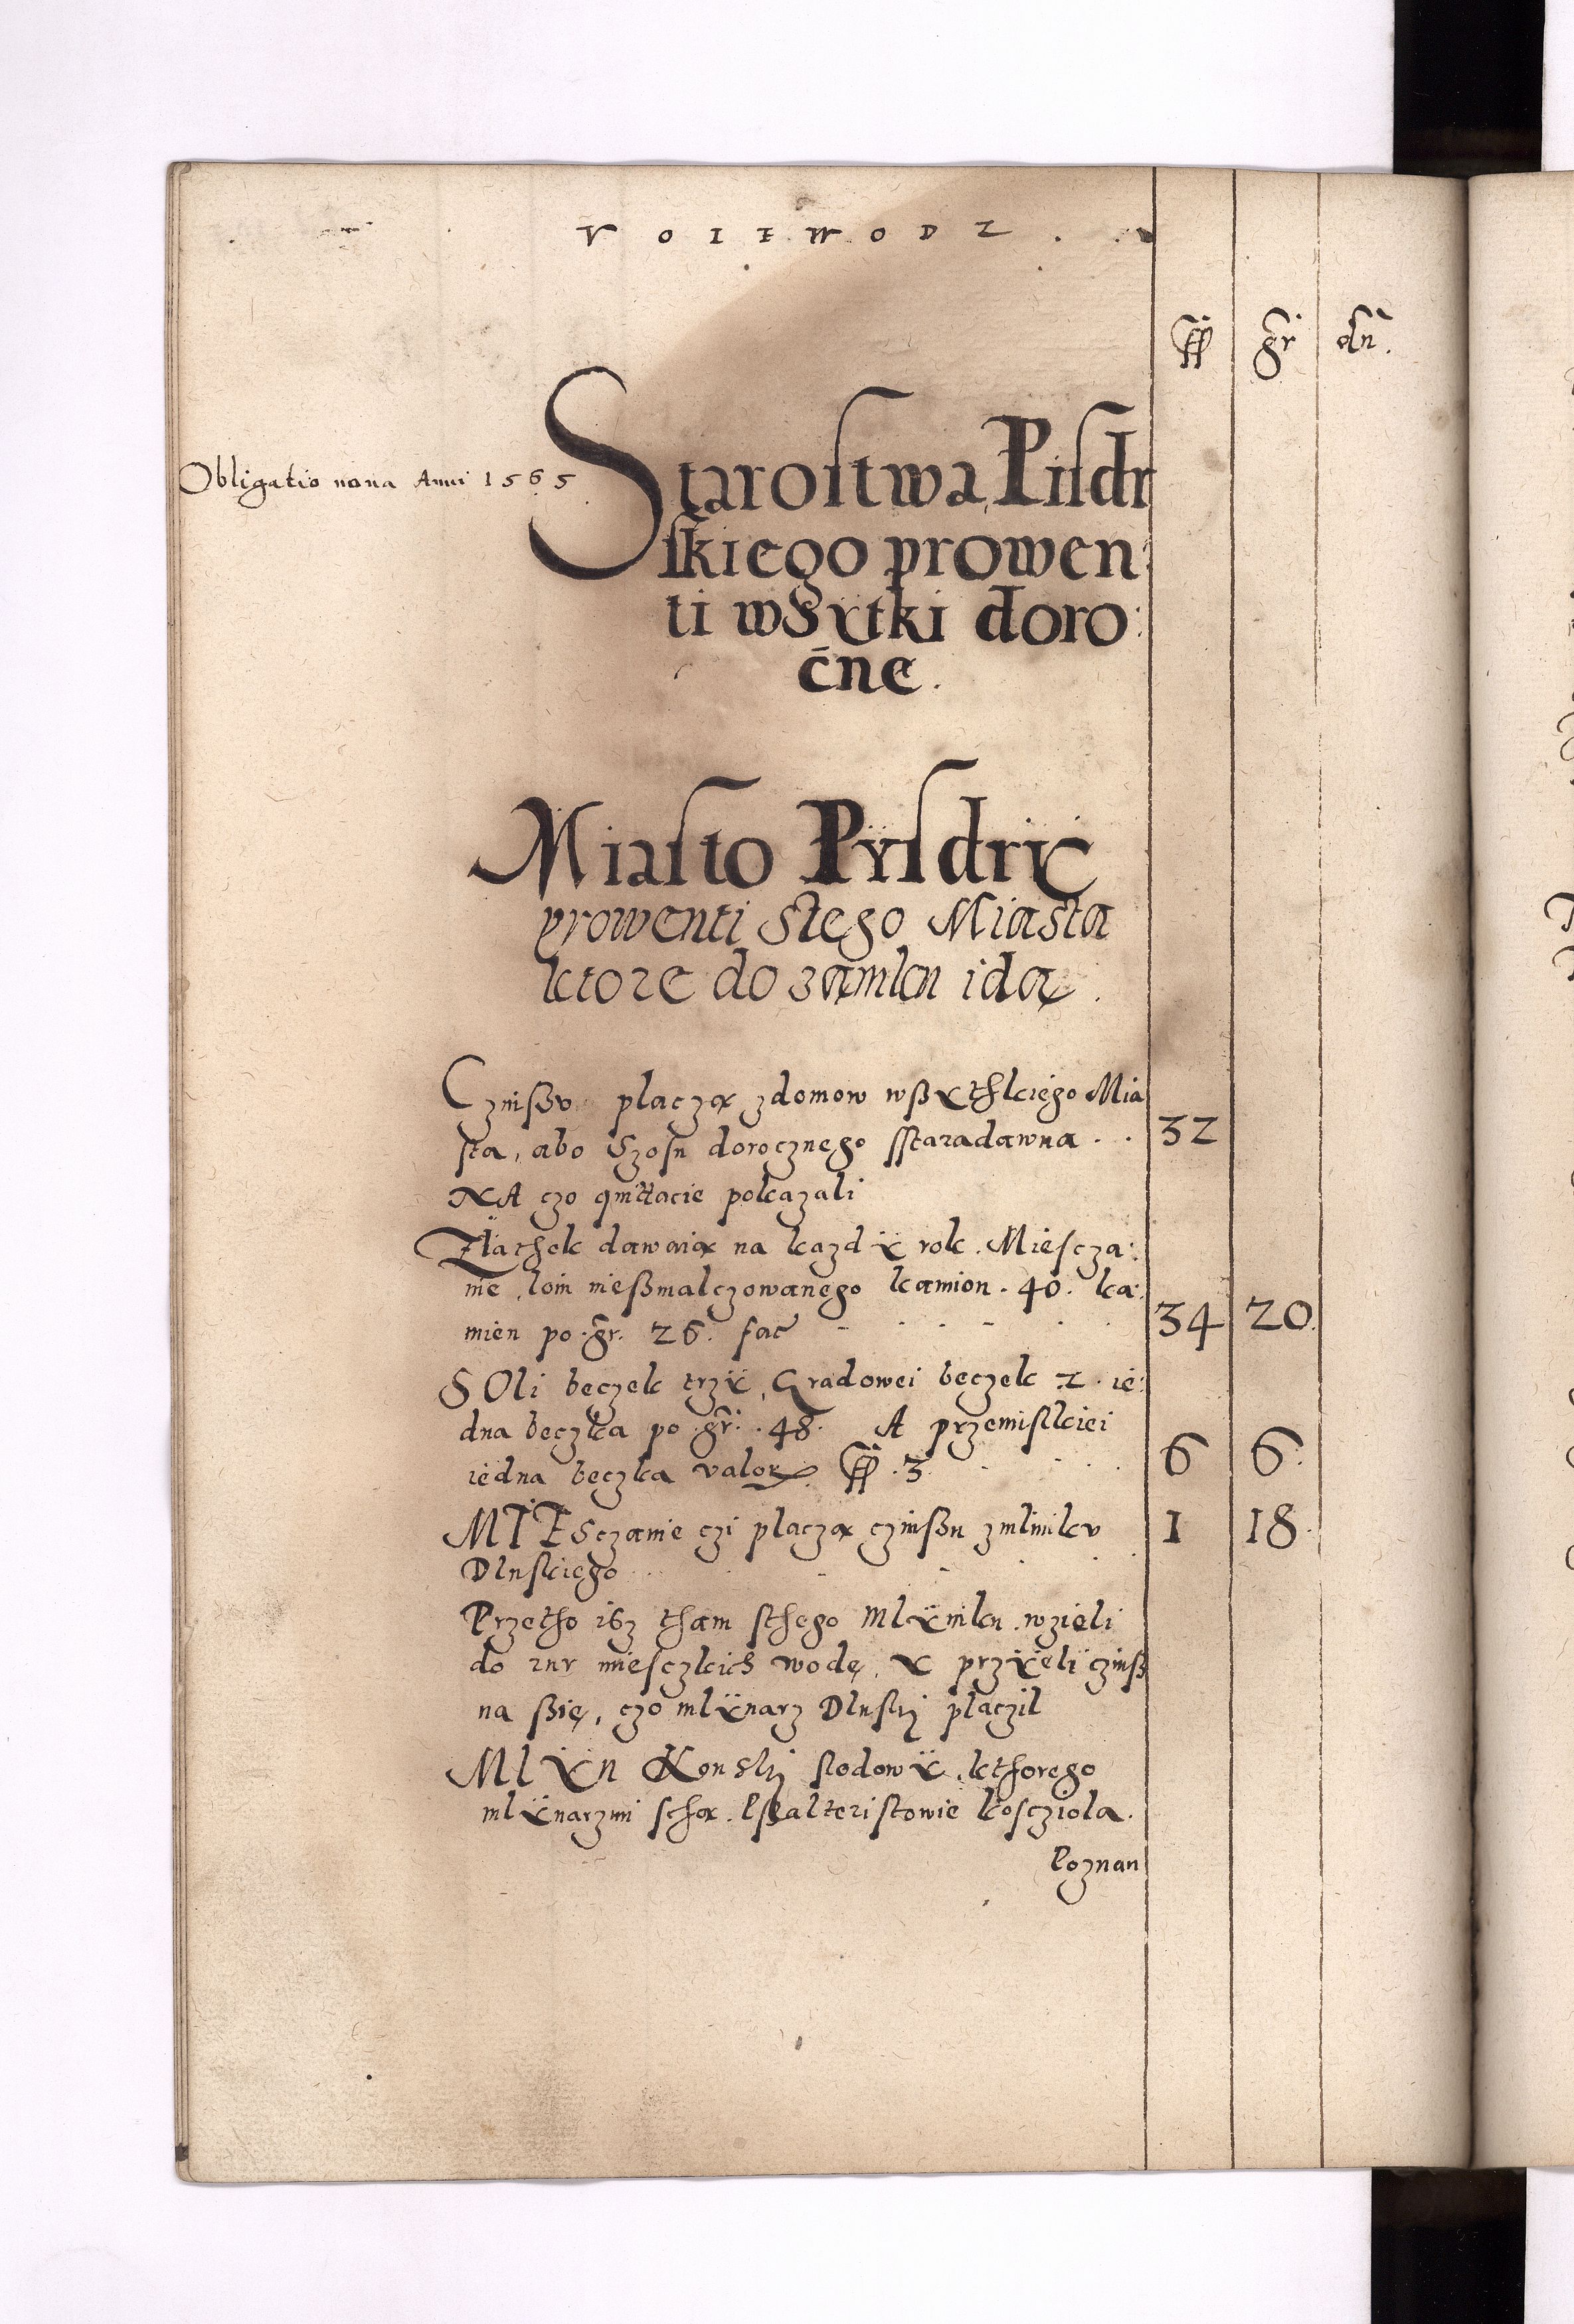 VOIEWODZ
fl gr dn.
Obligatio nona Anni 1565
Staroſtwa Piſdr
ſkiego prowen:
ti wSytki doro:
c̄ne.
Miaſto Pyſdrÿ
prowenti Stego Miasta
ktore do zamku idą.
Czinßu placzą z domow wßythkiego Mia
ſta, abo Szoſu dorocznego ſſtaradawna . . 32
NA czo quittacie pokazali
Zÿathek dawaią na kazdÿ rok Mieſcza:
nie loiu nießmalczowanego kamion . 40. ka:
mien po gr. 26. fac 34 20.
SOli beczek trzÿ, Gradowei beczek 2 . ie:
dna beczka po gr. 48. A przemiſkiei
iedna beczka valor fl . 3. 6 6.
MIESczanie czi placzą czinßu z mlinku 1 18.
Dluſkiego
Przetho isz tham ſthego mlÿnku wzieli
do rur mieſczkich wodę, y przÿięli czinß
na ßię, czo mlÿnarz Dluſki placzil
MlYn Konski ſlodowÿ, kthorego
mlÿnarzmi ſthą Pſzalteriſtowie koſcziola.
Poznan